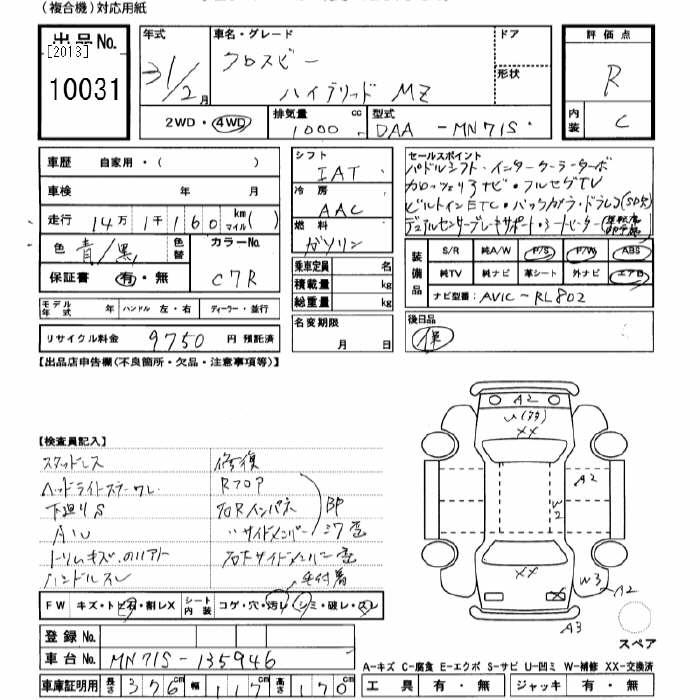 (複合機)対応用紙
出品No.
[2013]
10031
年式
31/2月
車名・グレード
クロスビー
ハイブリッド MZ
ドア
形状
2WD・4WD
排気量
1000cc
型式
DAA-MN71S
評価点
R
内装
C
車歴 自家用・( )
車検 年 月
走行 14万1千160km マイル( )
色 青/黒 色替 カラーNo. C7R
保証書 有・無
モデル年式 年 ハンドル 左・右 ディーラー・並行
リサイクル料金 9750円預託済
シフト
IAT
冷房
AAC
燃料
ガソリン
乗車定員 名
積載量 kg
総重量 kg
名変期限
月 日
セールスポイント
パドルシフト・インタークーラーターボ
カロッツェリアナビ・フルセグTV
ビルトインETC・バックカメラ・ドラレコ(SD欠)
デュアルセンサーブレーキサポート・シートヒーター
装備品
S/R 純A/W P/S P/W ABS
純TV 純ナビ 革シート 外ナビ エアB
ナビ型番: AVIC-RL802
後日品
【出品店申告欄(不良箇所・欠品・注意事項等)】
【検査員記入】
スタッドレス
ヘッドライトステーワレ
下廻りS
AW
ハンドルスレ
修復
Rフロア
右Rインパネ
〃サイドメンバー
BP
右Fサイドメンバー
FW キズ・トビ石・割レX
シート内装 コゲ・穴・汚レ・シミ・破レ・スレ
登録No.
車台No. MN71S-135946
車庫証明用 長さ 376cm 幅 117cm 高さ 170cm
A2
XX
A2
W2
XX
W3
A2
A3
スペア
A-キズ C-腐食 E-エクボ S-サビ U-凹ミ W-補修 XX-交換済
工具 有・無 ジャッキ 有・無